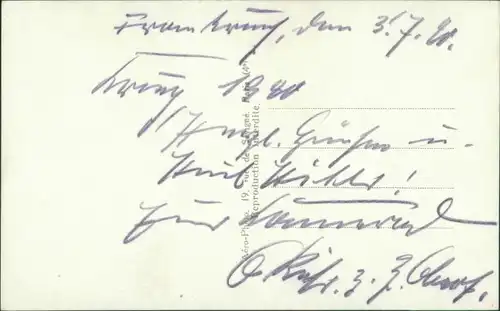 Frankreich, den 3.7.40.
Krieg 1940
Herzl. Grüßen u.
Heil Hitler!
Euer Kamerad
O. z. Z.
Aéro-Photo, 19, rue de
Reproduction interdite.